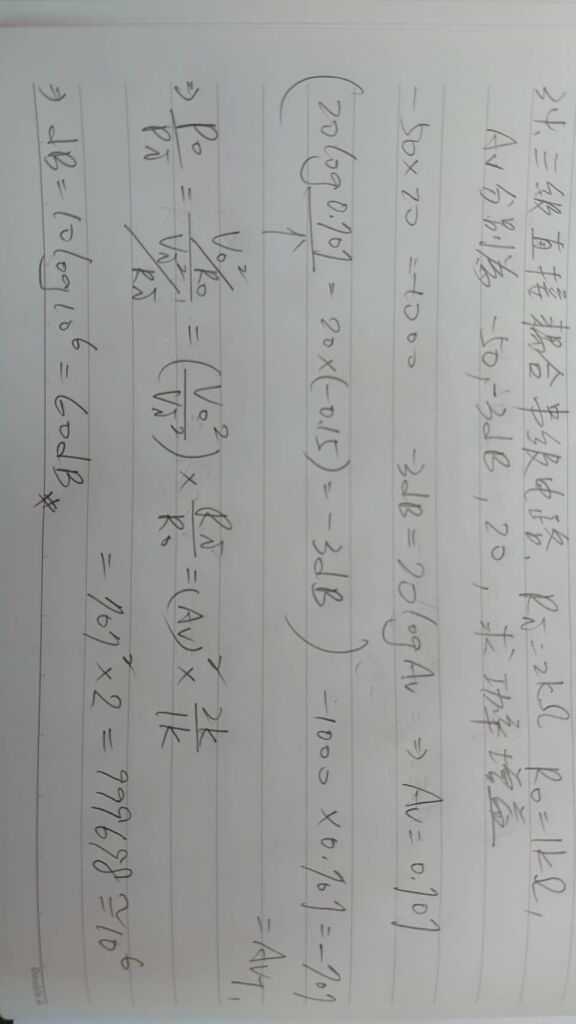 34. 三級直接耦合串級电路. Ri=2kΩ Ro=1kΩ,
Av分別為 -50, -3dB, 20, 求功率增益
-50×20=-1000 -3dB=20logAv ⇒ Av=0.707
(20log0.707=20×(-0.15)=-3dB) -1000×0.707=-707
=AvT
⇒ Po/Pi = (Vo²/Ro)/(Vi²/Ri) = (Vo²/Vi²)×Ri/Ro=(Av)²×2k/1k
=707²×2=999698≅10⁶
⇒ dB=10log10⁶=60dB